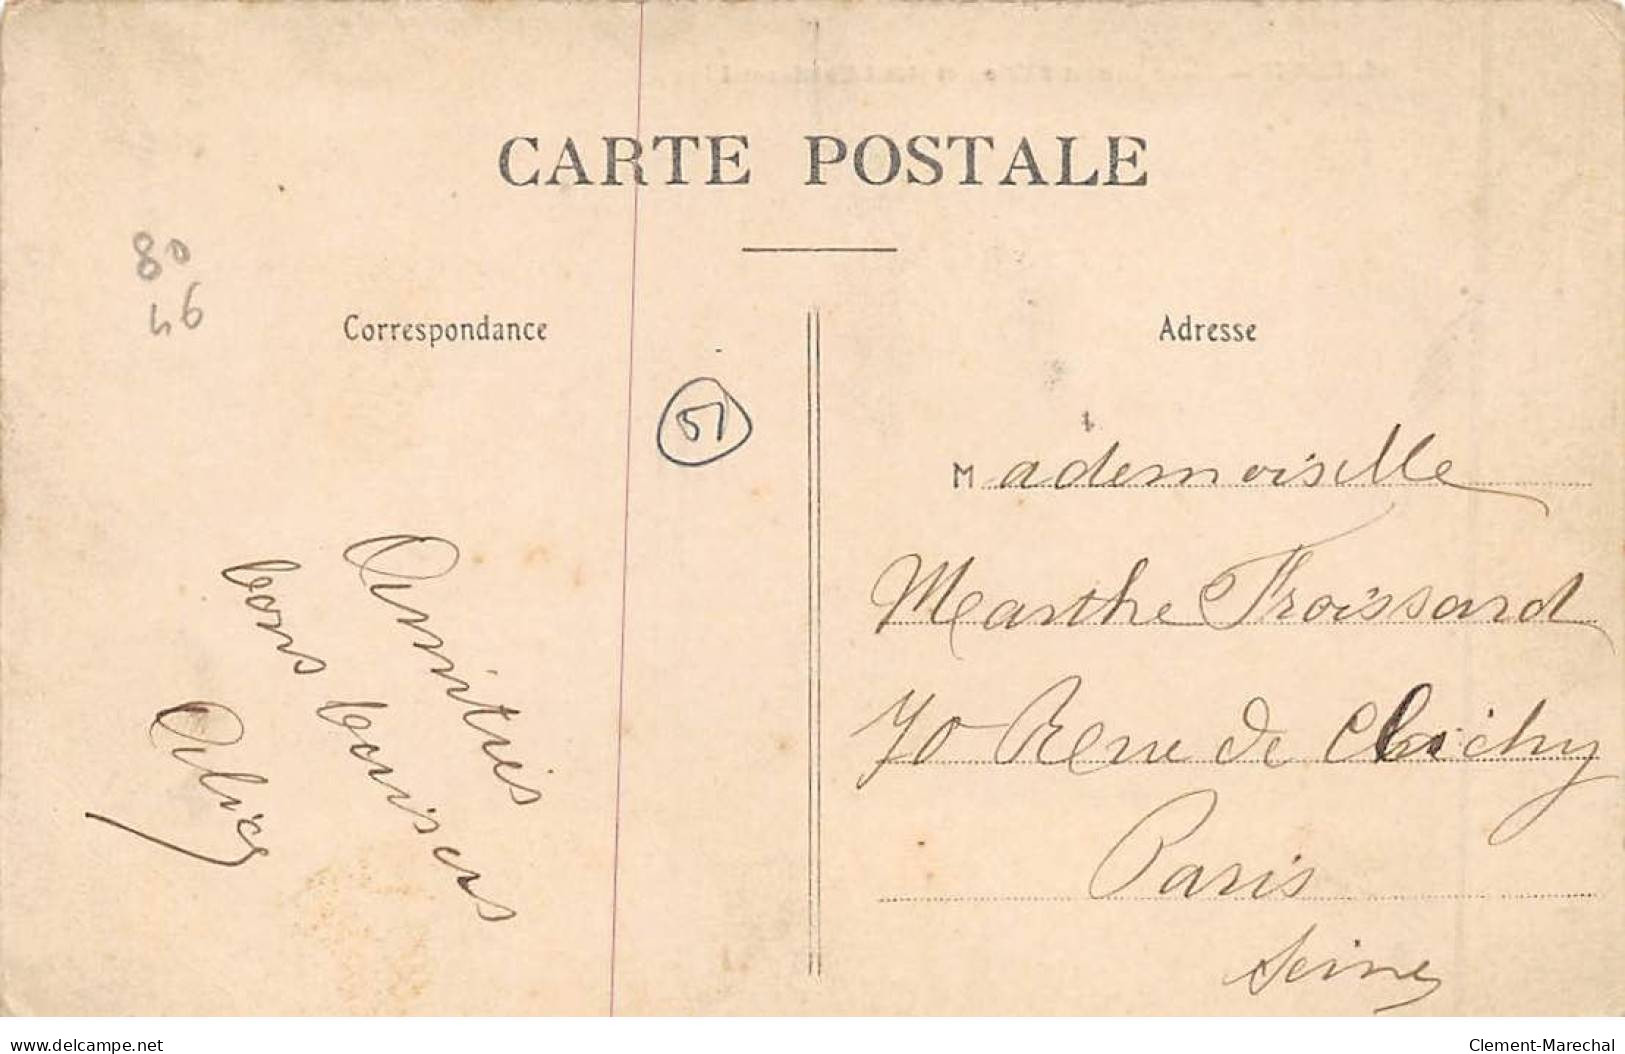 CARTE POSTALE
80
46
Correspondance
51
Amitiés
bons baisers
Alice
Adresse
Mademoiselle
Marthe Froissard
70 Rue de Clichy
Paris
Seine
www.delcampe.net
Clement-Marechal